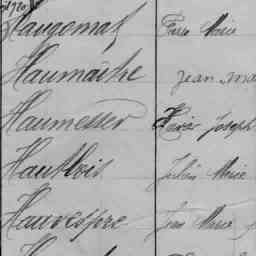 Haugomat Pierre Marie
Haumaître Jean Ma
Haumesser Xavier Joseph
Hautbois Julien Marie
Hauvespre Jean Marie